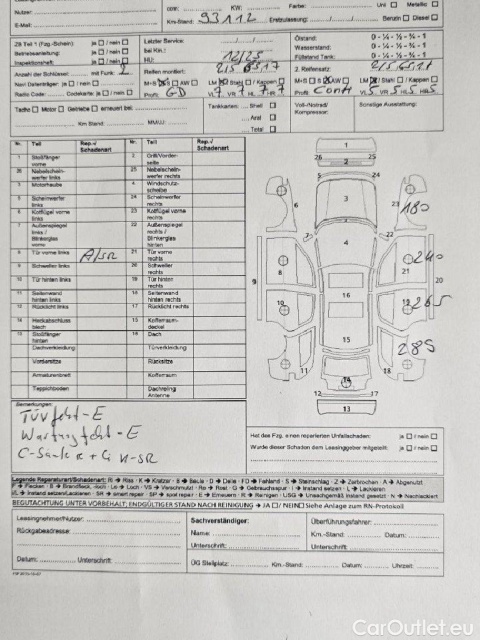 Nutzer:
KW:
Farbe:
Uni
Metallic
E-Mail:
Km-Stand: 93112
Erstzulassung:
Benzin
Diesel
ZB Teil 1 (Fzg.-Schein) ja / nein
Betriebsanleitung: ja / nein
Inspektionsheft ja / nein
Anzahl der Schlüssel: mit Funk: 2
Navi Datenträger: ja / nein
Radio Code: Codekarte: ja / nein
Letzter Service:
bei Km.:
HU: 12/25
Reifen montiert: 215 6517
M+S AW LM / Stahl / Kappen
Profil: VL 7 VR 7 HL 7 HR 7
Ölstand: 0 - ¼ - ½ - ¾ - 1
Wasserstand: 0 - ¼ - ½ - ¾ - 1
Füllstand Tank: 0 - ¼ - ½ - ¾ - 1
2. Reifensatz:
M+S AW LM / Stahl / Kappen
Profil: Conti VL 5 VR 5 HL 5 HR 5
Tacho Motor Getriebe erneuert bei
Km Stand MM/JJ:
Tankkarten: Shell
Aral
Total
Voll-/Notrad/
Kompressor:
Sonstige Ausstattung:
Nr. Teil Rep./ Schadenart Nr. Teil Rep./ Schadenart
1 Stoßfänger vorne 2 Grill/Vorderseite
26 Nebelscheinwerfer links 25 Nebelscheinwerfer rechts
3 Motorhaube 4 Windschutzscheibe
5 Scheinwerfer links 24 Scheinwerfer rechts
6 Kotflügel vorne links 23 Kotflügel vorne rechts
7 Außenspiegel links / Blinkerglas vorne 22 Außenspiegel rechts / Blinkerglas hinten
8 Tür vorne links A/SR 21 Tür vorne rechts
9 Schweller links 20 Schweller rechts
10 Tür hinten links 19 Tür hinten rechts
11 Seitenwand hinten links 18 Seitenwand hinten rechts
12 Rücklicht links 17 Rücklicht rechts
14 Heckabschlussblech 15 Kofferraumdeckel
13 Stoßfänger hinten 16 Dach
Dachverkleidung Türverkleidung
Vordersitze Rücksitze
Armaturenbrett Kofferraum
Teppichboden Dachreling Antenne
1
26 25
2
5 24
3
6 23
180
4
7 22
8 21
240
9 20
16
10 19
265
15
11 18
285
12 17
14
13
Bemerkungen:
TÜV fehlt - E
Wartung fehlt - E
Hat das Fzg. einen reparierten Unfallschaden: ja / nein
Wurde dieser Schaden dem Leasinggeber mitgeteilt: ja / nein
Legende Reparaturart/Schadenart: Ri → Riss • K → Kratzer • B → Beule • D → Delle • FD → Fehlend • S → Steinschlag • Z → Zerbrochen • A → Abgenutzt
F → Flecken • B → Brandfleck • Loch • VS → Verschmutzt • Ro → Rost • G → Gebrauchsspur • I → Instand setzen • L → Lackieren
I/L → Instand setzen/Lackieren • SR → smart repair • SP → spot repair • E → Erneuern • R → Reinigen • USG → Unsachgemäß instand gesetzt • N → Nachlackiert
BEGUTACHTUNG UNTER VORBEHALT; ENDGÜLTIGER STAND NACH REINIGUNG → JA / NEIN Siehe Anlage zum RN-Protokoll
Leasingnehmer/Nutzer:
Rückgabeadresse:
Datum: Unterschrift
Sachverständiger:
Name:
Unterschrift:
Überführungsfahrer:
Datum:
Unterschrift:
ÜG Stellplatz: Km.-Stand: Datum: Uhrzeit:
CarOutlet.eu